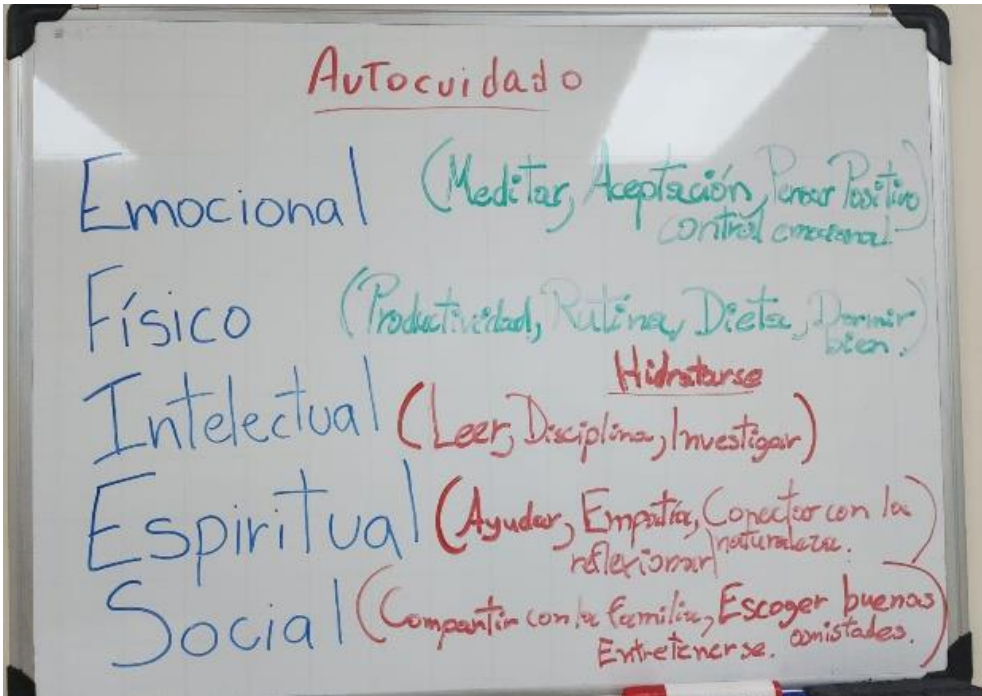 Autocuidado
Emocional (Meditar, Aceptación, Pensar Positivo
control emocional)
Físico (Productividad, Rutina, Dieta, Dormir
bien.)
Hidratarse
Intelectual (Leer, Disciplina, Investigar)
Espiritual (Ayudar, Empatía, Conectar con la
reflexionar naturaleza.)
Social (Compartir con la familia, Escoger buenas
Entretenerse. amistades.)